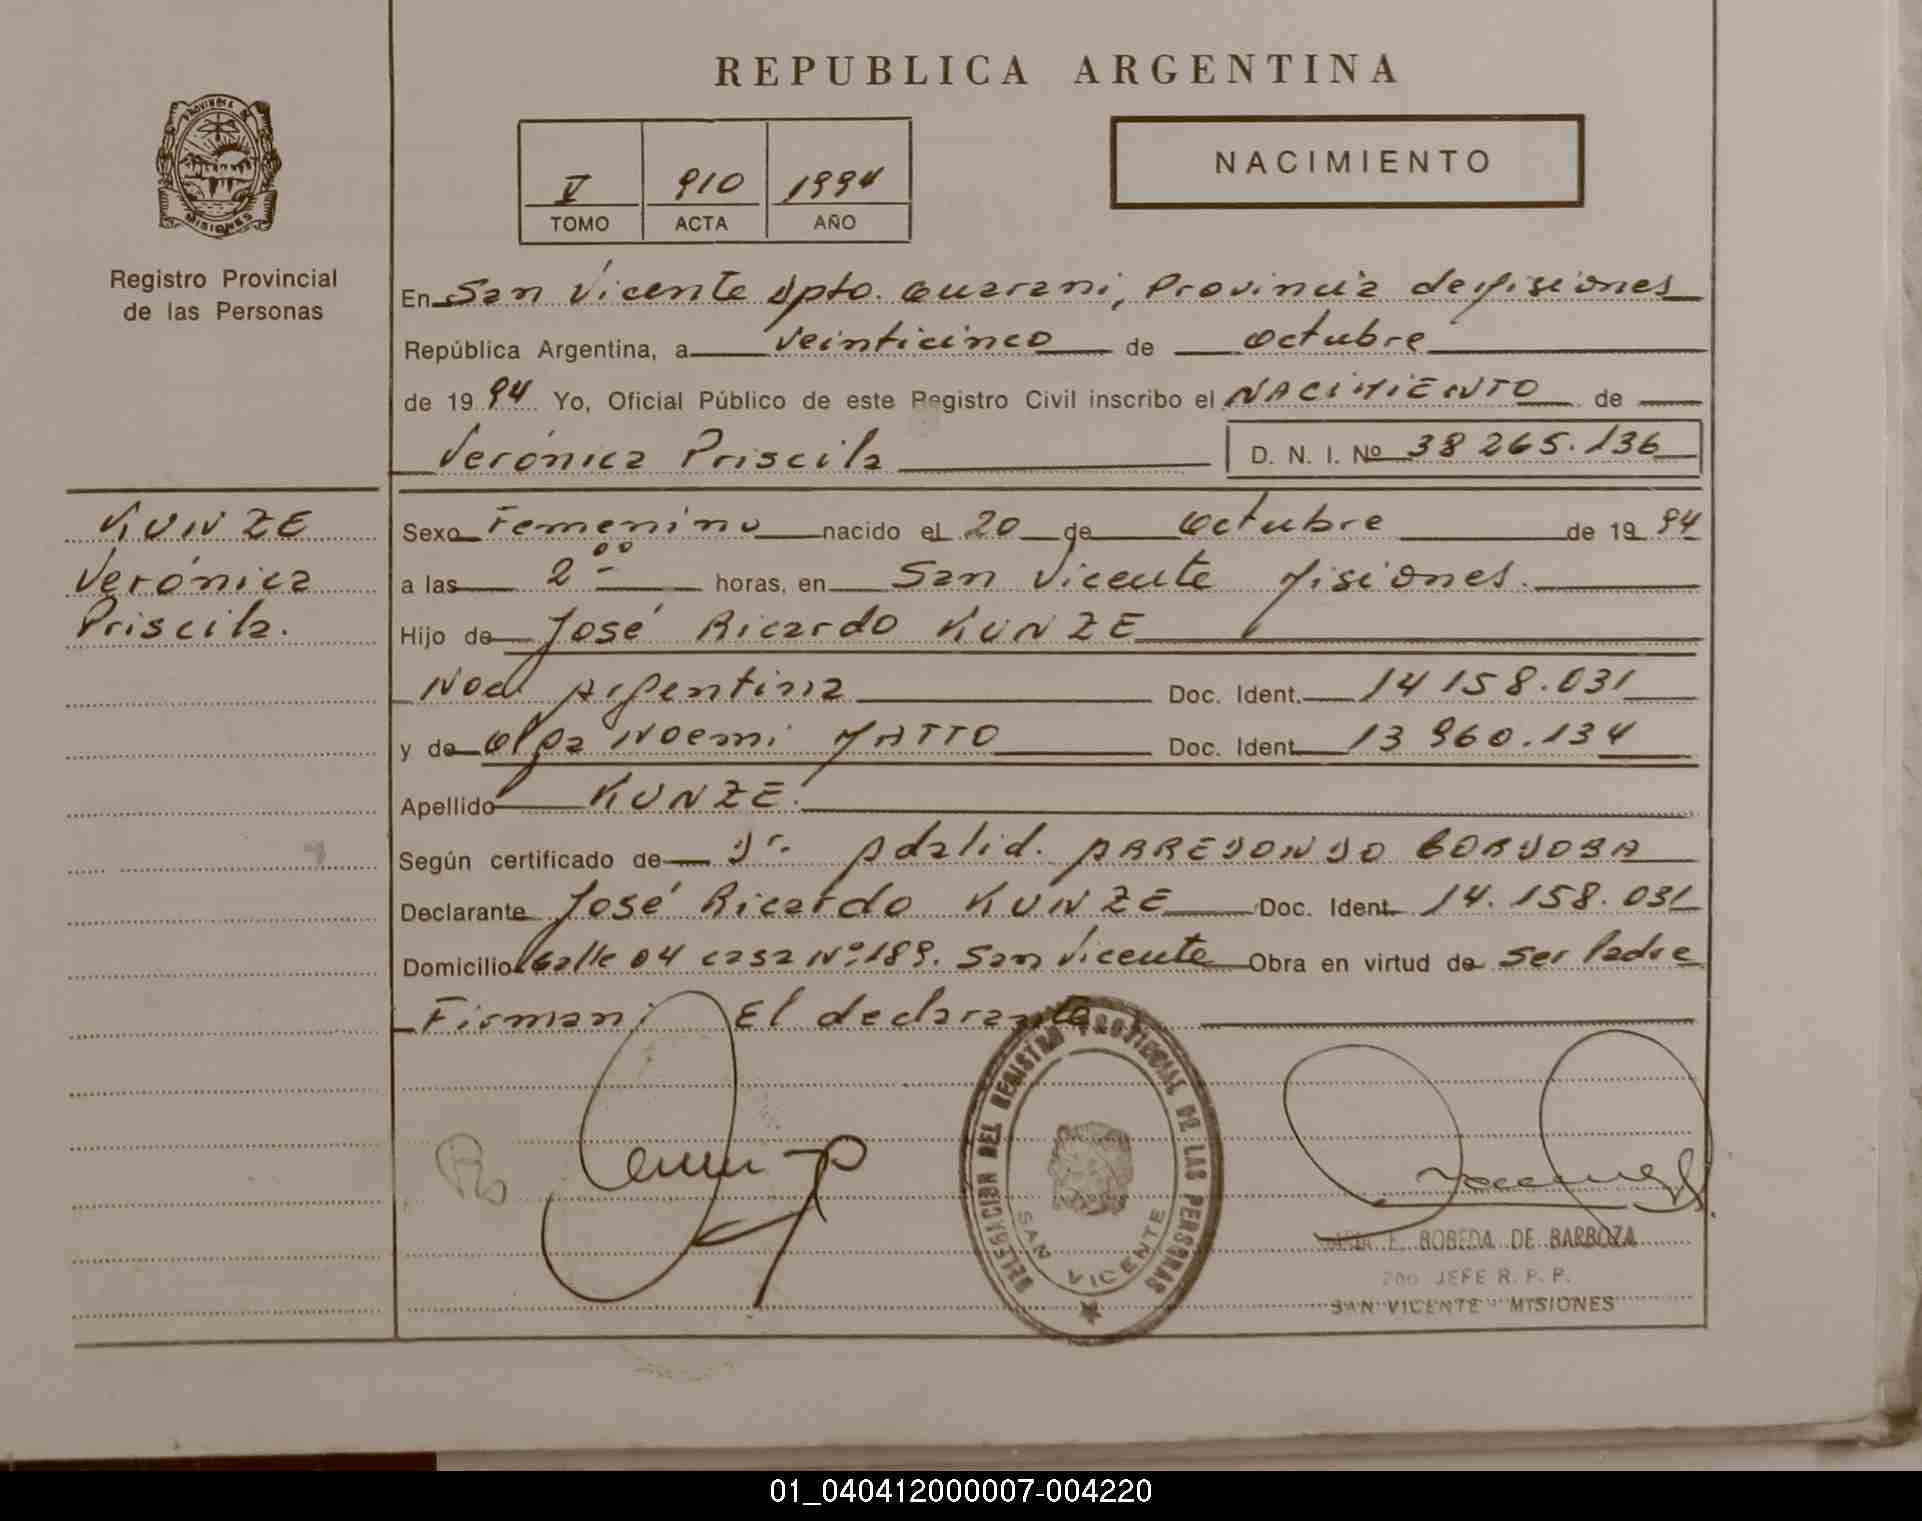 REPUBLICA ARGENTINA
PROVINCIA DE
MISIONES
Registro Provincial
de las Personas
V 910 1994
TOMO ACTA AÑO
NACIMIENTO
En San Vicente Dpto. Guarani, Provincia de Misiones
República Argentina, a veinticinco de octubre
de 1994 Yo, Oficial Público de este Registro Civil inscribo el NACIMIENTO de
Verónica Priscila D. N. I. Nº 38 265.136
KUNZE
Verónica
Priscila.
Sexo Femenino nacido el 20 de octubre de 1994
a las 2 00 horas, en San Vicente Misiones.
Hijo de José Ricardo KUNZE
Nac. Argentina Doc. Ident. 14 158.031
y de Olga Noemi MATTO Doc. Ident. 13 960.134
Apellido KUNZE.
Según certificado de Dr. Adalid. ARREDONDO CORDOBA
Declarante José Ricardo KUNZE Doc. Ident. 14.158.031
Domicilio Calle 04 casa Nº 189. San Vicente Obra en virtud de ser Padre
Firman: El declarante
DELEGACION DEL REGISTRO PROVINCIAL DE LAS PERSONAS
SAN VICENTE
E. BOBEDA DE BARBOZA
2do JEFE R. P. P.
SAN VICENTE MISIONES
01_040412000007-004220